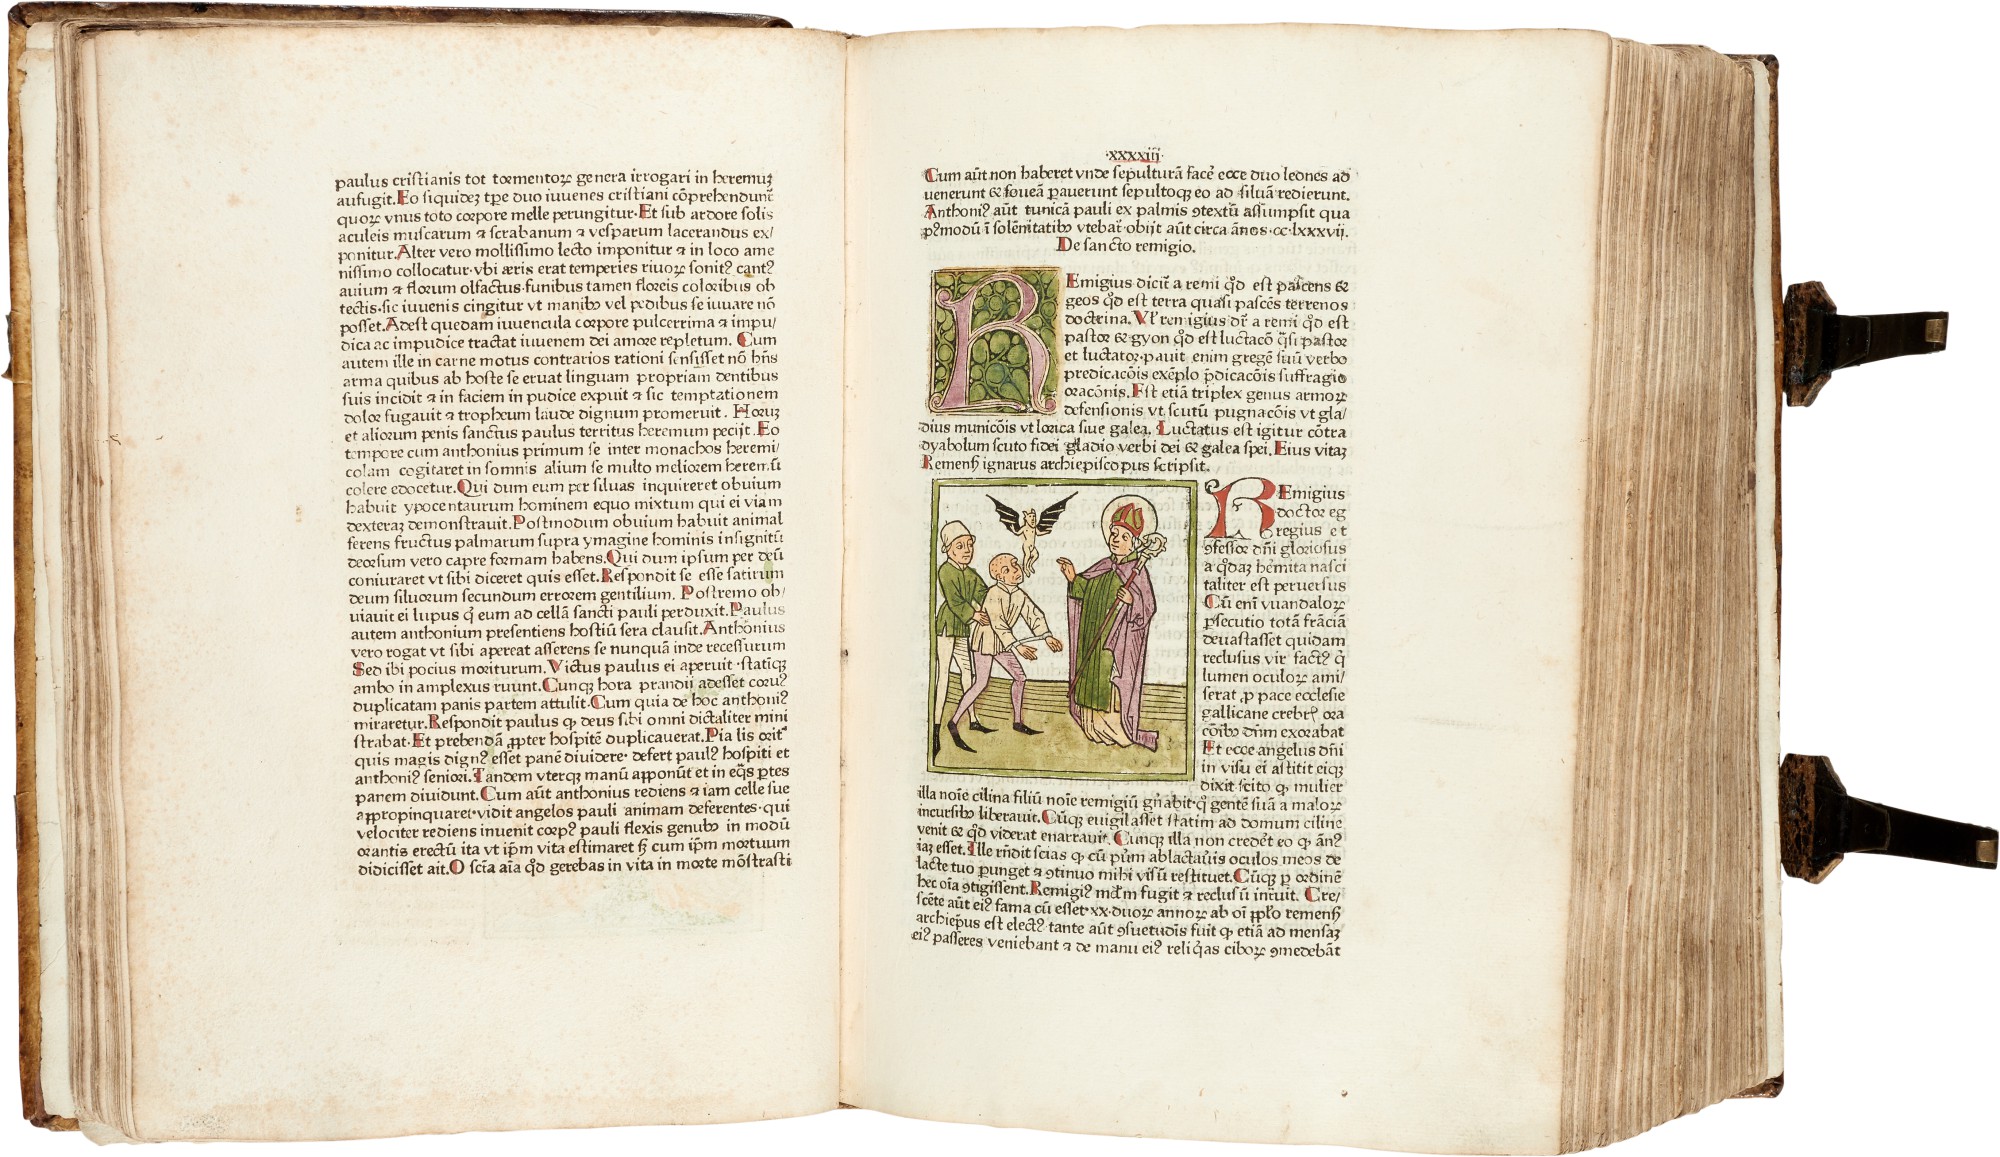 paulus cristianis tot tormentoꝝ genera irrogari in heremuꝫ
aufugit. Eo siquideꝫ tꝑe duo iuuenes cristiani cõprehendunt᷑
quoꝝ vnus toto corpore melle perungitur. Et sub ardore solis
aculeis muscarum ⁊ scrabanum ⁊ vesparum lacerandus ex/
ponitur. Alter vero mollissimo lecto imponitur ⁊ in loco ame
nissimo collocatur·vbi æris erat temperies riuoꝝ sonitꝰ cantꝰ
auium ⁊ florum olfactus·funibus tamen floreis coloribus ob
tectis·sic iuuenis cingitur vt manibꝰ vel pedibus se iuuare nõ
posset. Adest quedam iuuencula corpore pulcerrima ⁊ impu/
dica ac impudice tractat iuuenem dei amore repletum. Cum
autem ille in carne motus contrarios rationi sensisset nõ hñs
arma quibus ab hoste se eruat linguam propriam dentibus
suis incidit ⁊ in faciem in pudice expuit ⁊ sic temptationem
dolor fugauit ⁊ tropheum laude dignum promeruit. Horuꝫ
et aliorum penis sanctus paulus territus heremum pecijt. Eo
tempore cum anthonius primum se inter monachos heremi/
colam cogitaret in somnis alium se multo meliorem herem.ũ
colere edocetur. Qui dum eum per siluas inquireret obuium
habuit ypocentaurum hominem equo mixtum qui ei viam
dexteraꝫ demonstrauit. Postmodum obuium habuit animal
ferens fructus palmarum supra ymagine hominis insignitũ
deorsum vero capre formam habens. Qui dum ipsum per deũ
coniuraret vt sibi diceret quis esset. Respondit se esse satirum
deum siluorum secundum errorem gentilium. Postremo ob/
uiauit ei lupus q̃ eum ad cellã sancti pauli perduxit. Paulus
autem anthonium presentiens hostiũ sera clausit. Anthonius
vero rogat vt sibi apereat asserens se nunquã inde recessurum
Sed ibi pocius moriturum. Victus paulus ei aperuit·statiqꝫ
ambo in amplexus ruunt. Cunqꝫ hora prandii adesset coruꝰ
duplicatam panis partem attulit. Cum quia de hoc anthoniꝰ
miraretur. Respondit paulus ꝙ deus sibi omni die taliter mini
strabat. Et prebendã ꝓpter hospitẽ duplicauerat. Pia lis orit᷑
quis magis dignꝰ esset panẽ diuidere· defert paulꝰ hospiti et
anthoniꝰ seniori. Tandem vterqꝫ manũ apponũt et in eq̃s ꝑtes
panem diuidunt. Cum aũt anthonius rediens ⁊ iam celle sue
appropinquaret·vidit angelos pauli animam deferentes·qui
velociter rediens inuenit corpꝰ pauli flexis genubꝰ in modũ
orantis erectũ ita vt ip̃m vita estimaret ꝫ cum ip̃m mortuum
didicisset ait. O sc̃ia aĩa qõ gerebas in vita in morte mõstrasti
·xxxxiij·
Cum aũt non haberet vnde sepulturã facẽ ecce duo leones ad
uenerunt & foueã ꝑauerunt sepultoqꝫ eo ad siluã redierunt.
Anthoniꝰ aũt tunicã pauli ex palmis ꝯtextũ assumpsit qua
pꝰmodũ ĩ solẽnitatibꝰ vtebat᷑ obijt aũt circa ãnos·cc·lxxxvij.
De sancto remigio.
REmigius dicit᷑ a remi qõ est pascens &
geos qõ est terra quasi pascẽs terrenos
doctrina. Vl̃ remigius dr̃ a remi qõ est
pastor & gyon qõ est luctacõ q̃si pastor
et luctator·pauit enim gregẽ suũ verbo
predicacõis exẽplo p̃dicacõis suffragio
oracõnis. Est etiã triplex genus armoꝝ
defensionis vt scutũ pugnacõis vt gla/
dius municõis vt lorica siue galea. Luctatus est igitur cõtra
dyabolum scuto fidei gladio verbi dei & galea spei. Eius vitaꝫ
Remenẽ ignarus archiepiscopus scripsit.
REmigius
doctor eg
regius et
ꝯfessor dñi gloriosus
a q̃daꝫ hẽmita nasci
taliter est peruersus
Cũ enĩ vuandaloꝝ
ꝑsecutio totã frãciã
deuastasset quidam
reclusus vir factꝰ q̃
lumen oculoꝝ ami/
serat ꝓ pace ecclesie
gallicane crebrꝭ ora
cõibꝰ dñm exorabat
Et ecce angelus dñi
in visu eĩ astitit eiqꝫ
dixit scito ꝙ mulier
illa noĩe cilina filiũ noĩe remigiũ gñabit·q̃ gentẽ suã a maloꝝ
incursibꝰ liberauit. Cũqꝫ euigilasset statim ad domum ciline
venit & qõ viderat enarrauit. Cunqꝫ illa non crederet eo ꝙ ãnꝰ
iaꝫ esset. Ille rñdit scias ꝙ cũ pũm ablactaũis oculos meos de
lacte tuo ꝑunget & ꝯtinuo mihi visũ restituet. Cũqꝫ ꝑ ordinẽ
hec oĩa ꝯtigissent. Remigiꝰ mũdm fugit ⁊ reclusũ intrũit. Cre/
scẽte aũt eiꝰ fama cũ esset·xx·duoꝝ annoꝝ ab oĩ pplo remenẽ
archiep̃us est electꝰ tante aũt ꝯsuetudis fuit ꝙ etiã ad mensaꝫ
eiꝰ passeres veniebant ⁊ de manu eiꝰ reliq̃as ciboꝝ ꝯmedebãt